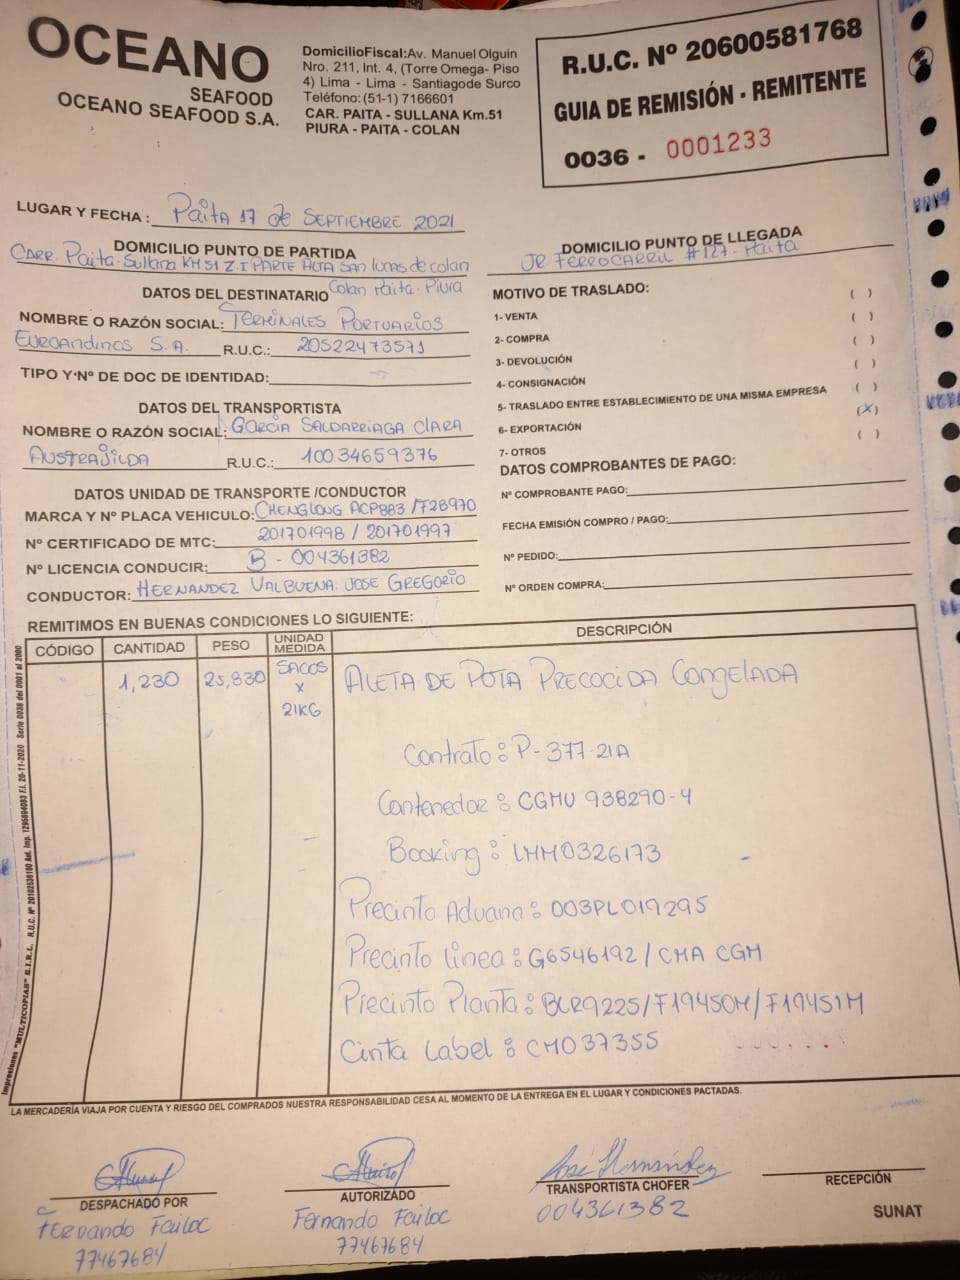 OCEANO
SEAFOOD
OCEANO SEAFOOD S.A.
DomicilioFiscal:Av. Manuel Olguin
Nro. 211, Int. 4, (Torre Omega- Piso
4) Lima - Lima - Santiagode Surco
Teléfono:(51-1) 7166601
CAR. PAITA - SULLANA Km.51
PIURA - PAITA - COLAN
R.U.C. Nº 20600581768
GUIA DE REMISIÓN - REMITENTE
0036 - 0001233
LUGAR Y FECHA : Paita 17 de SEPTIEMBRE 2021
DOMICILIO PUNTO DE PARTIDA
CARR. Paita-Sullana KM 51 Z.I PARTE ALTA San lucas de colan
Colan Paita-Piura
DOMICILIO PUNTO DE LLEGADA
JR FERROCARRIL #127-Paita
DATOS DEL DESTINATARIO
NOMBRE O RAZÓN SOCIAL: TERMINALES PORTUARIOS
EUROANDINOS S.A. R.U.C.: 20522473571
TIPO Y Nº DE DOC DE IDENTIDAD:
DATOS DEL TRANSPORTISTA
NOMBRE O RAZÓN SOCIAL: GARCIA SALDARRIAGA CLARA
AUSTRAJILDA R.U.C.: 10034659376
DATOS UNIDAD DE TRANSPORTE /CONDUCTOR
MARCA Y Nº PLACA VEHICULO: CHENGLONG ACP883 /T2B970
Nº CERTIFICADO DE MTC: 201701998 / 201701997
Nº LICENCIA CONDUCIR: B - 004361382
CONDUCTOR: HERNANDEZ VALBUENA JOSE GREGORIO
MOTIVO DE TRASLADO:
1- VENTA ( )
2- COMPRA ( )
3- DEVOLUCIÓN ( )
4- CONSIGNACIÓN ( )
5- TRASLADO ENTRE ESTABLECIMIENTO DE UNA MISMA EMPRESA ( )
6- EXPORTACIÓN (X)
7- OTROS ( )
DATOS COMPROBANTES DE PAGO:
Nº COMPROBANTE PAGO:
FECHA EMISIÓN COMPRO / PAGO:
Nº PEDIDO:
Nº ORDEN COMPRA:
REMITIMOS EN BUENAS CONDICIONES LO SIGUIENTE:
CÓDIGO CANTIDAD PESO UNIDAD MEDIDA DESCRIPCIÓN
1,230 25,830 SACOS x 21KG ALETA DE POTA PRECOCIDA CONGELADA
Contrato: P-377-21A
Contenedor: CGMU 938290-4
Booking: LMM0326173
Precinto Aduana: 003PL019295
Precinto linea: G6546192 / CMA CGM
Precinto Planta: BLR9225/F19450M/F19451M
Cinta Label: CM037355
Impresiones "MULTICOPIAS" E.I.R.L. R.U.C. Nº 20102536160 Aut. Imp. 1295694083 F.I. 20-11-2020 Serie 0036 del 0001 al 2000
LA MERCADERÍA VIAJA POR CUENTA Y RIESGO DEL COMPRADOS NUESTRA RESPONSABILIDAD CESA AL MOMENTO DE LA ENTREGA EN EL LUGAR Y CONDICIONES PACTADAS.
José Hernández
DESPACHADO POR
Fernando Failoc
77467684
AUTORIZADO
Fernando Failoc
77467684
TRANSPORTISTA CHOFER
004361382
RECEPCIÓN
SUNAT